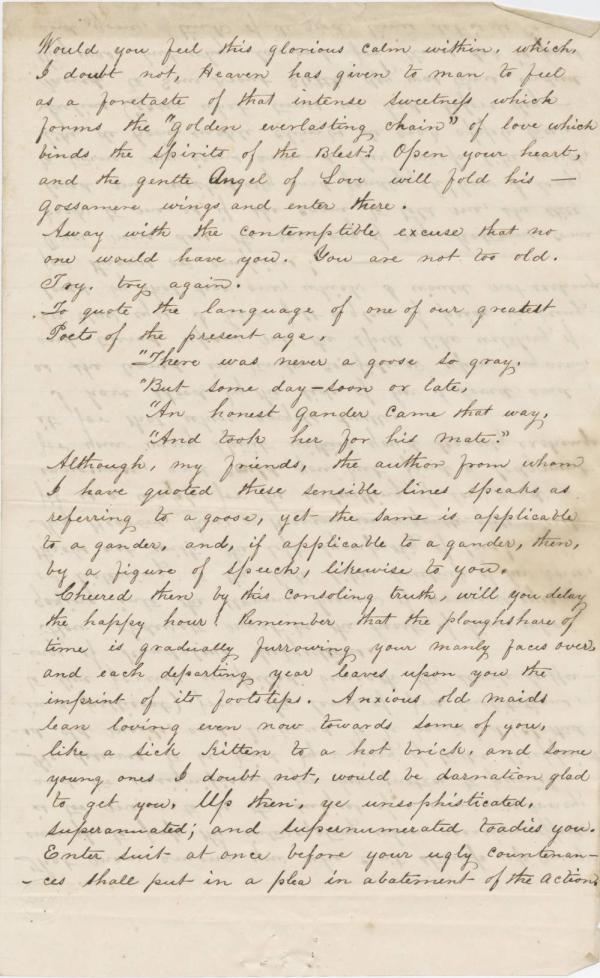 Would you feel this glorious calm within, which,
I doubt not, Heaven has given to man to feel
as a foretaste of that intense sweetness which
forms the "golden everlasting chain" of love which
binds the spirits of the Blest? Open your heart,
and the gentle Angel of Love will fold his —
gossamere wings and enter there.
Away with the contemptible excuse that no
one would have you. You are not too old.
Try. try again.
To quote the language of one of our greatest
Poets of the present age,
"There was never a goose so gray,
"But some day—soon or late,
"An honest gander came that way,
"And took her for his mate."
Although, my friends, the author from whom
I have quoted these sensible lines speaks as
referring to a goose, yet the same is applicable
to a gander, and, if applicable to a gander, then,
by a figure of speech, likewise to you.
Cheered then by this consoling truth, will you delay
the happy hour! Remember that the ploughshare of
time is gradually furrowing your manly faces over,
and each departing year leaves upon you the
imprint of its footsteps. Anxious old maids
lean loving even now towards some of you,
like a sick kitten to a hot brick, and some
young ones I doubt not, would be darnation glad
to get you. Up then, ye unsophisticated,
superanuated; and supernumerated toadies you.
Enter suit at once before your ugly countenan–
–ces shall put in a plea in abatement of the action.